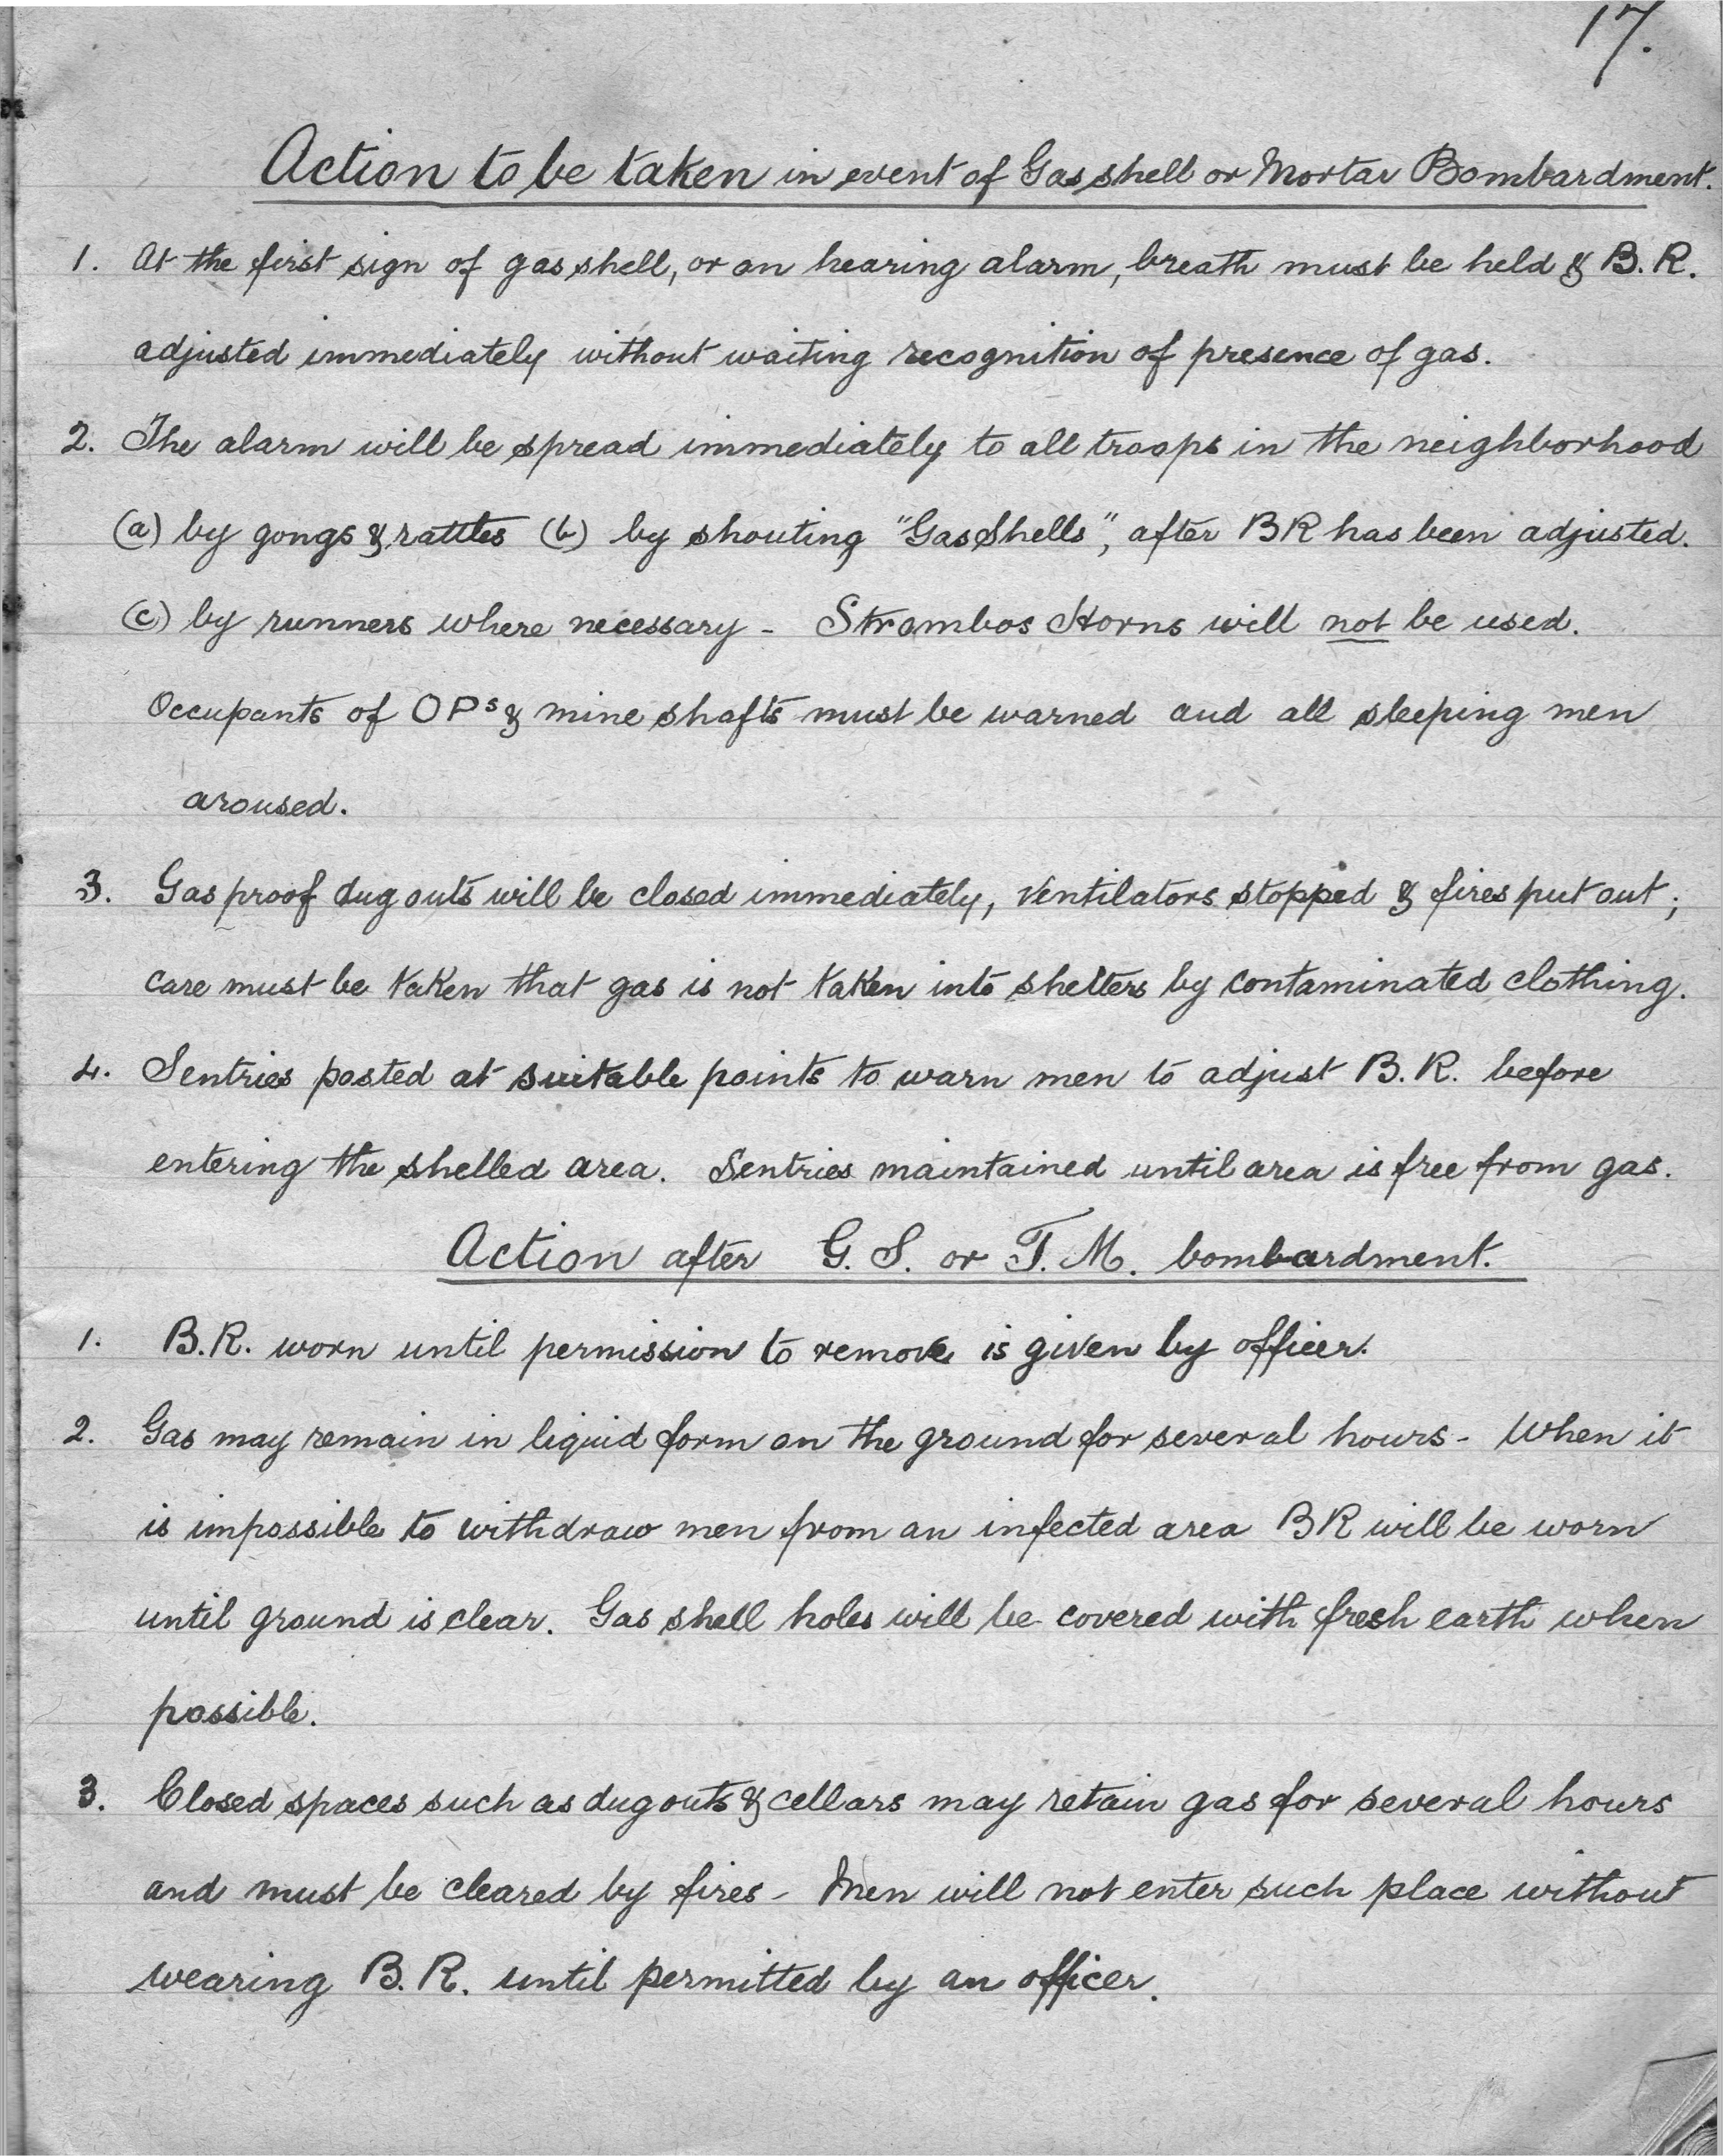 17.
Action to be taken in event of Gas shell or Mortar Bombardment.
1. At the first sign of gas shell, or on hearing alarm, breath must be held & B.R.
adjusted immediately without waiting recognition of presence of gas.
2. The alarm will be spread immediately to all troops in the neighborhood
(a) by gongs & rattles (b) by shouting "Gas Shells", after BR has been adjusted.
(c) by runners where necessary - Strombos Horns will not be used.
Occupants of OPs & mine shafts must be warned and all sleeping men
aroused.
3. Gas proof dug outs will be closed immediately, ventilators stopped & fires put out;
care must be taken that gas is not taken into shelters by contaminated clothing.
4. Sentries posted at suitable points to warn men to adjust B.R. before
entering the shelled area. Sentries maintained until area is free from gas.
Action after G.S. or T.M. bombardment.
1. B.R. worn until permission to remove is given by officer.
2. Gas may remain in liquid form on the ground for several hours - When it
is impossible to withdraw men from an infected area BR will be worn
until ground is clear. Gas shell holes will be covered with fresh earth when
possible.
3. Closed spaces such as dug outs & cellars may retain gas for several hours
and must be cleared by fires - Men will not enter such place without
wearing B.R. until permitted by an officer.